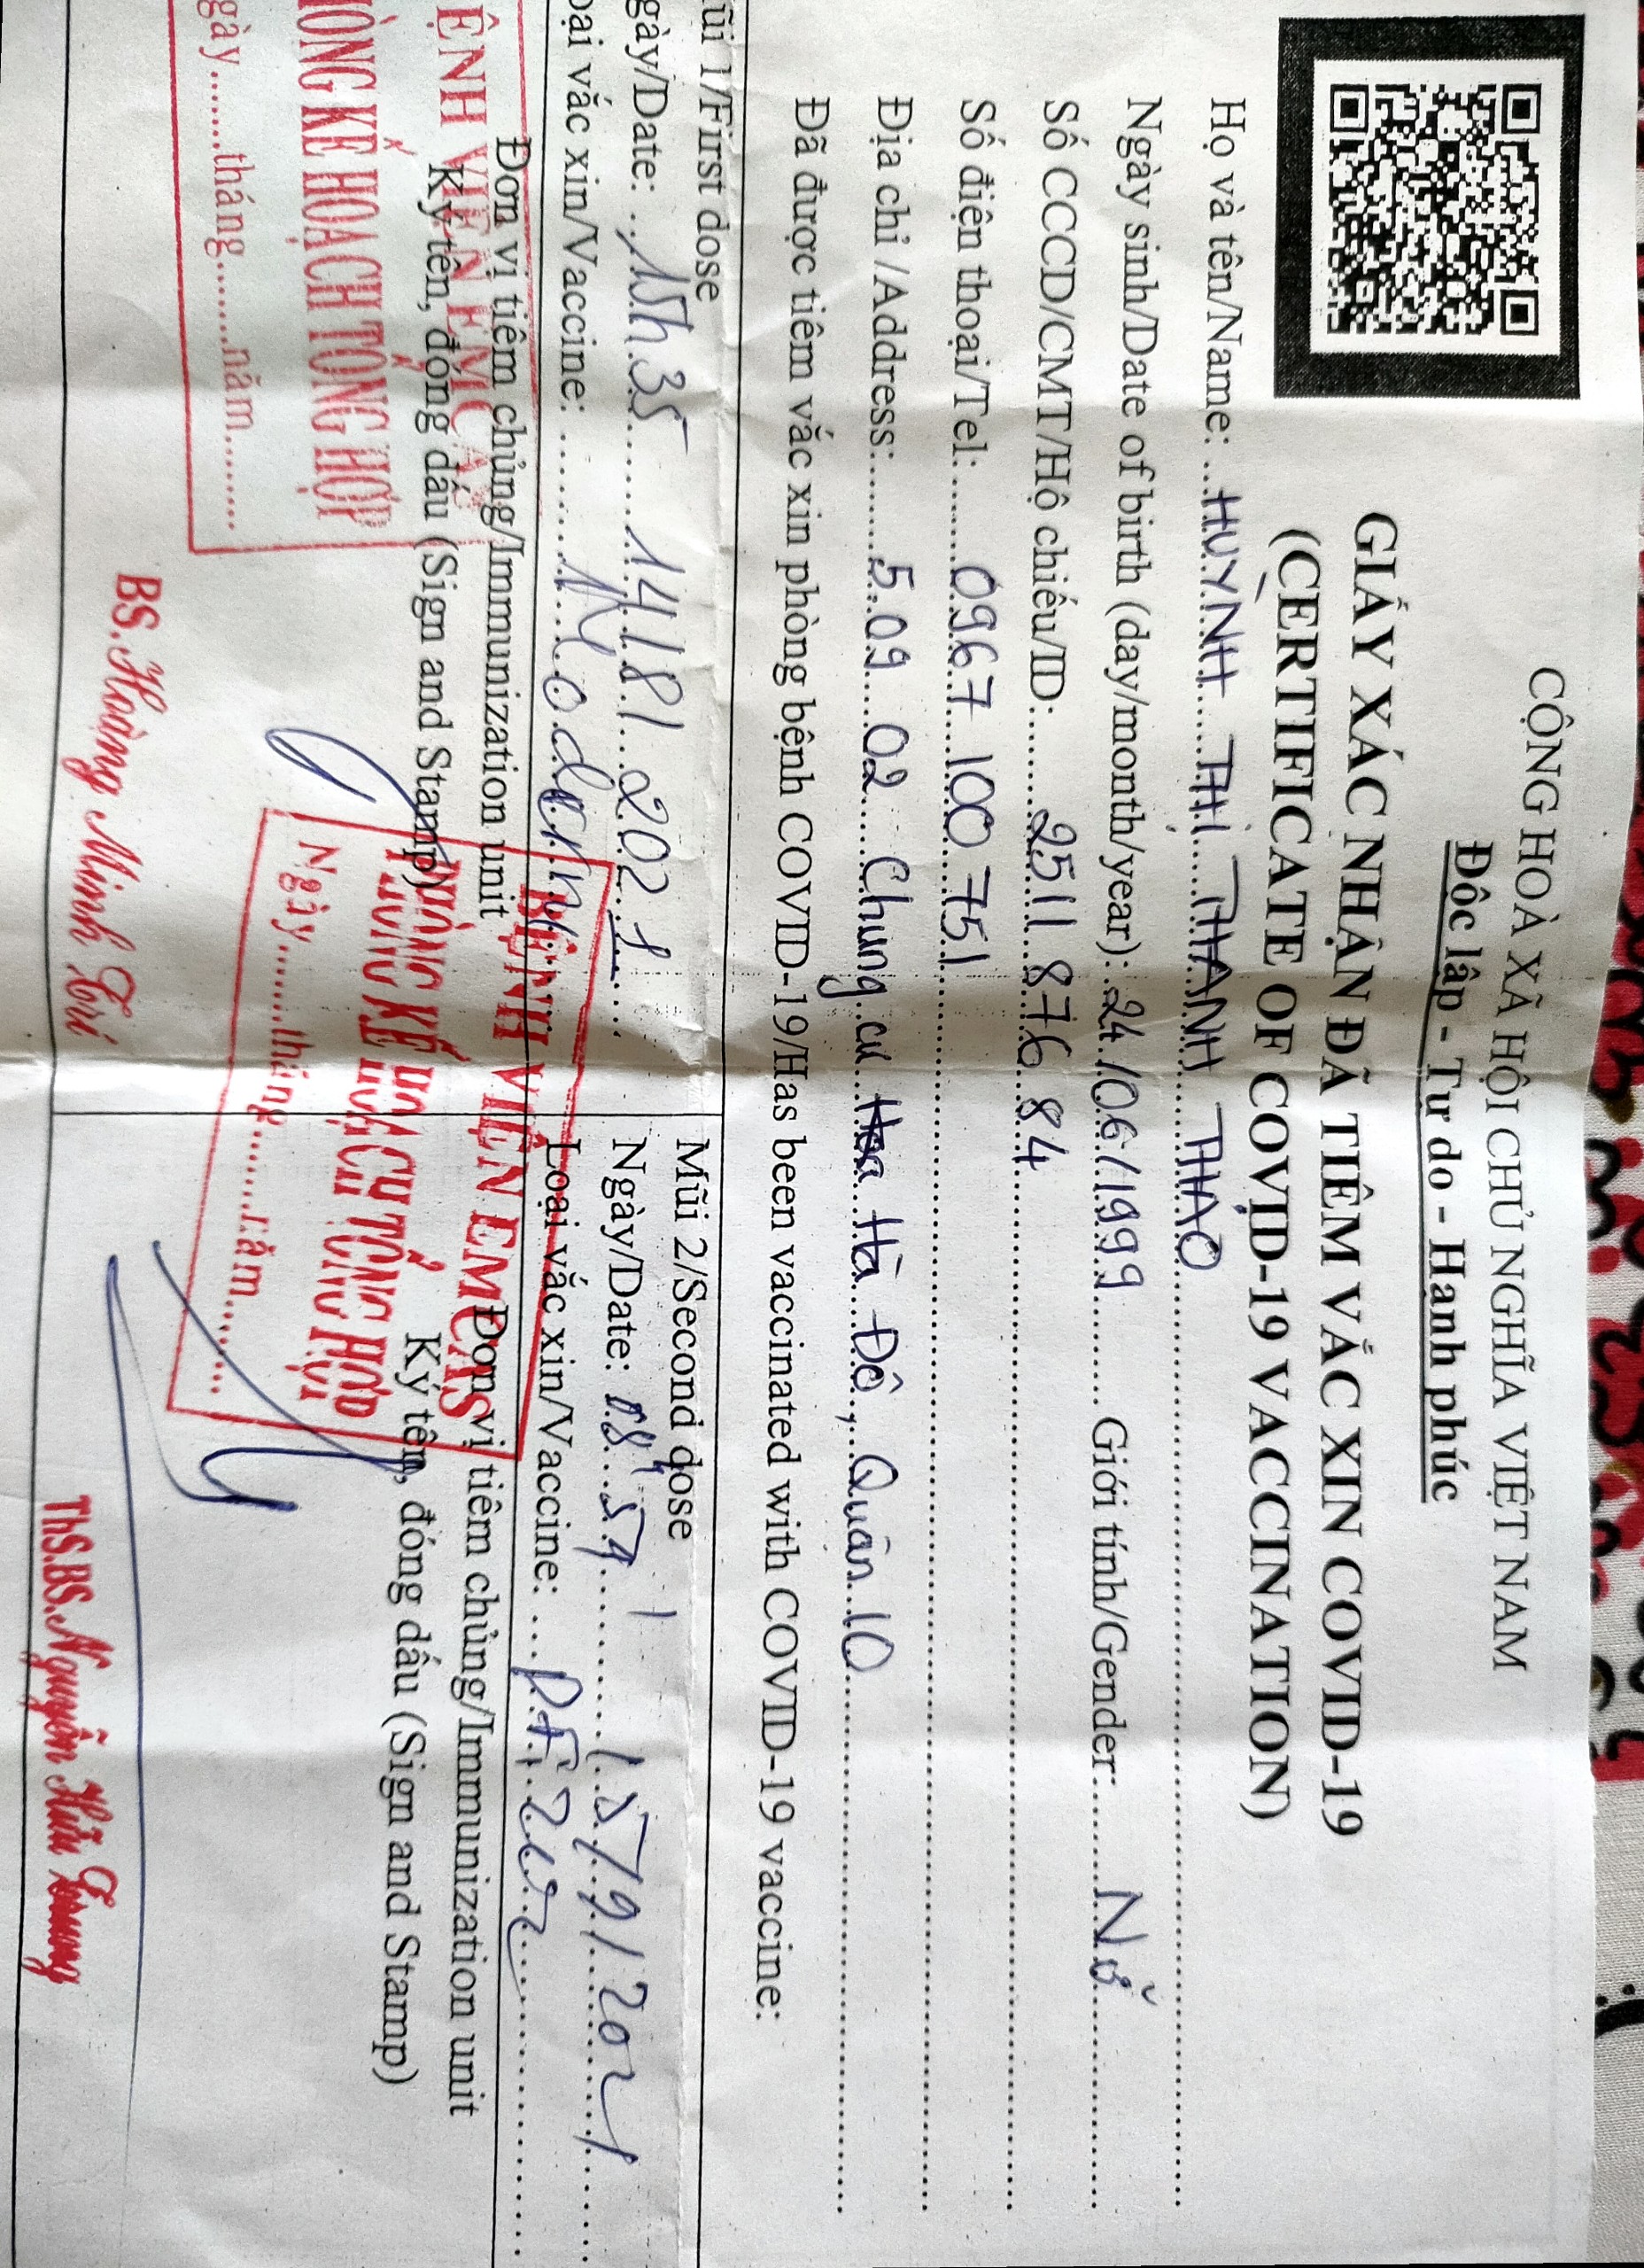 CỘNG HOÀ XÃ HỘI CHỦ NGHĨA VIỆT NAM
Độc lập - Tự do - Hạnh phúc
GIẤY XÁC NHẬN ĐÃ TIÊM VẮC XIN COVID-19
(CERTIFICATE OF COVID-19 VACCINATION)
Họ và tên/Name: HUYNH THỊ THANH THAO
Ngày sinh/Date of birth (day/month/year): 24/06/1999 Giới tính/Gender: Nữ
Số CCCD/CMT/Hộ chiếu/ID: 2511 876 84
Số điện thoại/Tel: 0967 100 751
Địa chỉ /Address: 5.09 02 Chung cư Hà Đô, Quận 10
Đã được tiêm vắc xin phòng bệnh COVID-19/Has been vaccinated with COVID-19 vaccine:
ũi 1/First dose
gày/Date: 15h35 14/8/2021
oại vắc xin/Vaccine: Moderna
Đơn vị tiêm chủng/Immunization unit
Ký tên, đóng dấu (Sign and Stamp)
ỆNH VIỆN EMCAS
ÒNG KẾ HOẠCH TỔNG HỢP
gày........tháng........năm.........
BS. Hoàng Minh Trí
Mũi 2/Second dose
Ngày/Date: 08 57 15/9/2021
Loại vắc xin/Vaccine: Pfizer
Đơn vị tiêm chủng/Immunization unit
Ký tên, đóng dấu (Sign and Stamp)
BỆNH VIỆN EMCAS
PHÒNG KẾ HOẠCH TỔNG HỢP
Ngày........tháng........năm.........
ThS.BS. Nguyễn Hữu